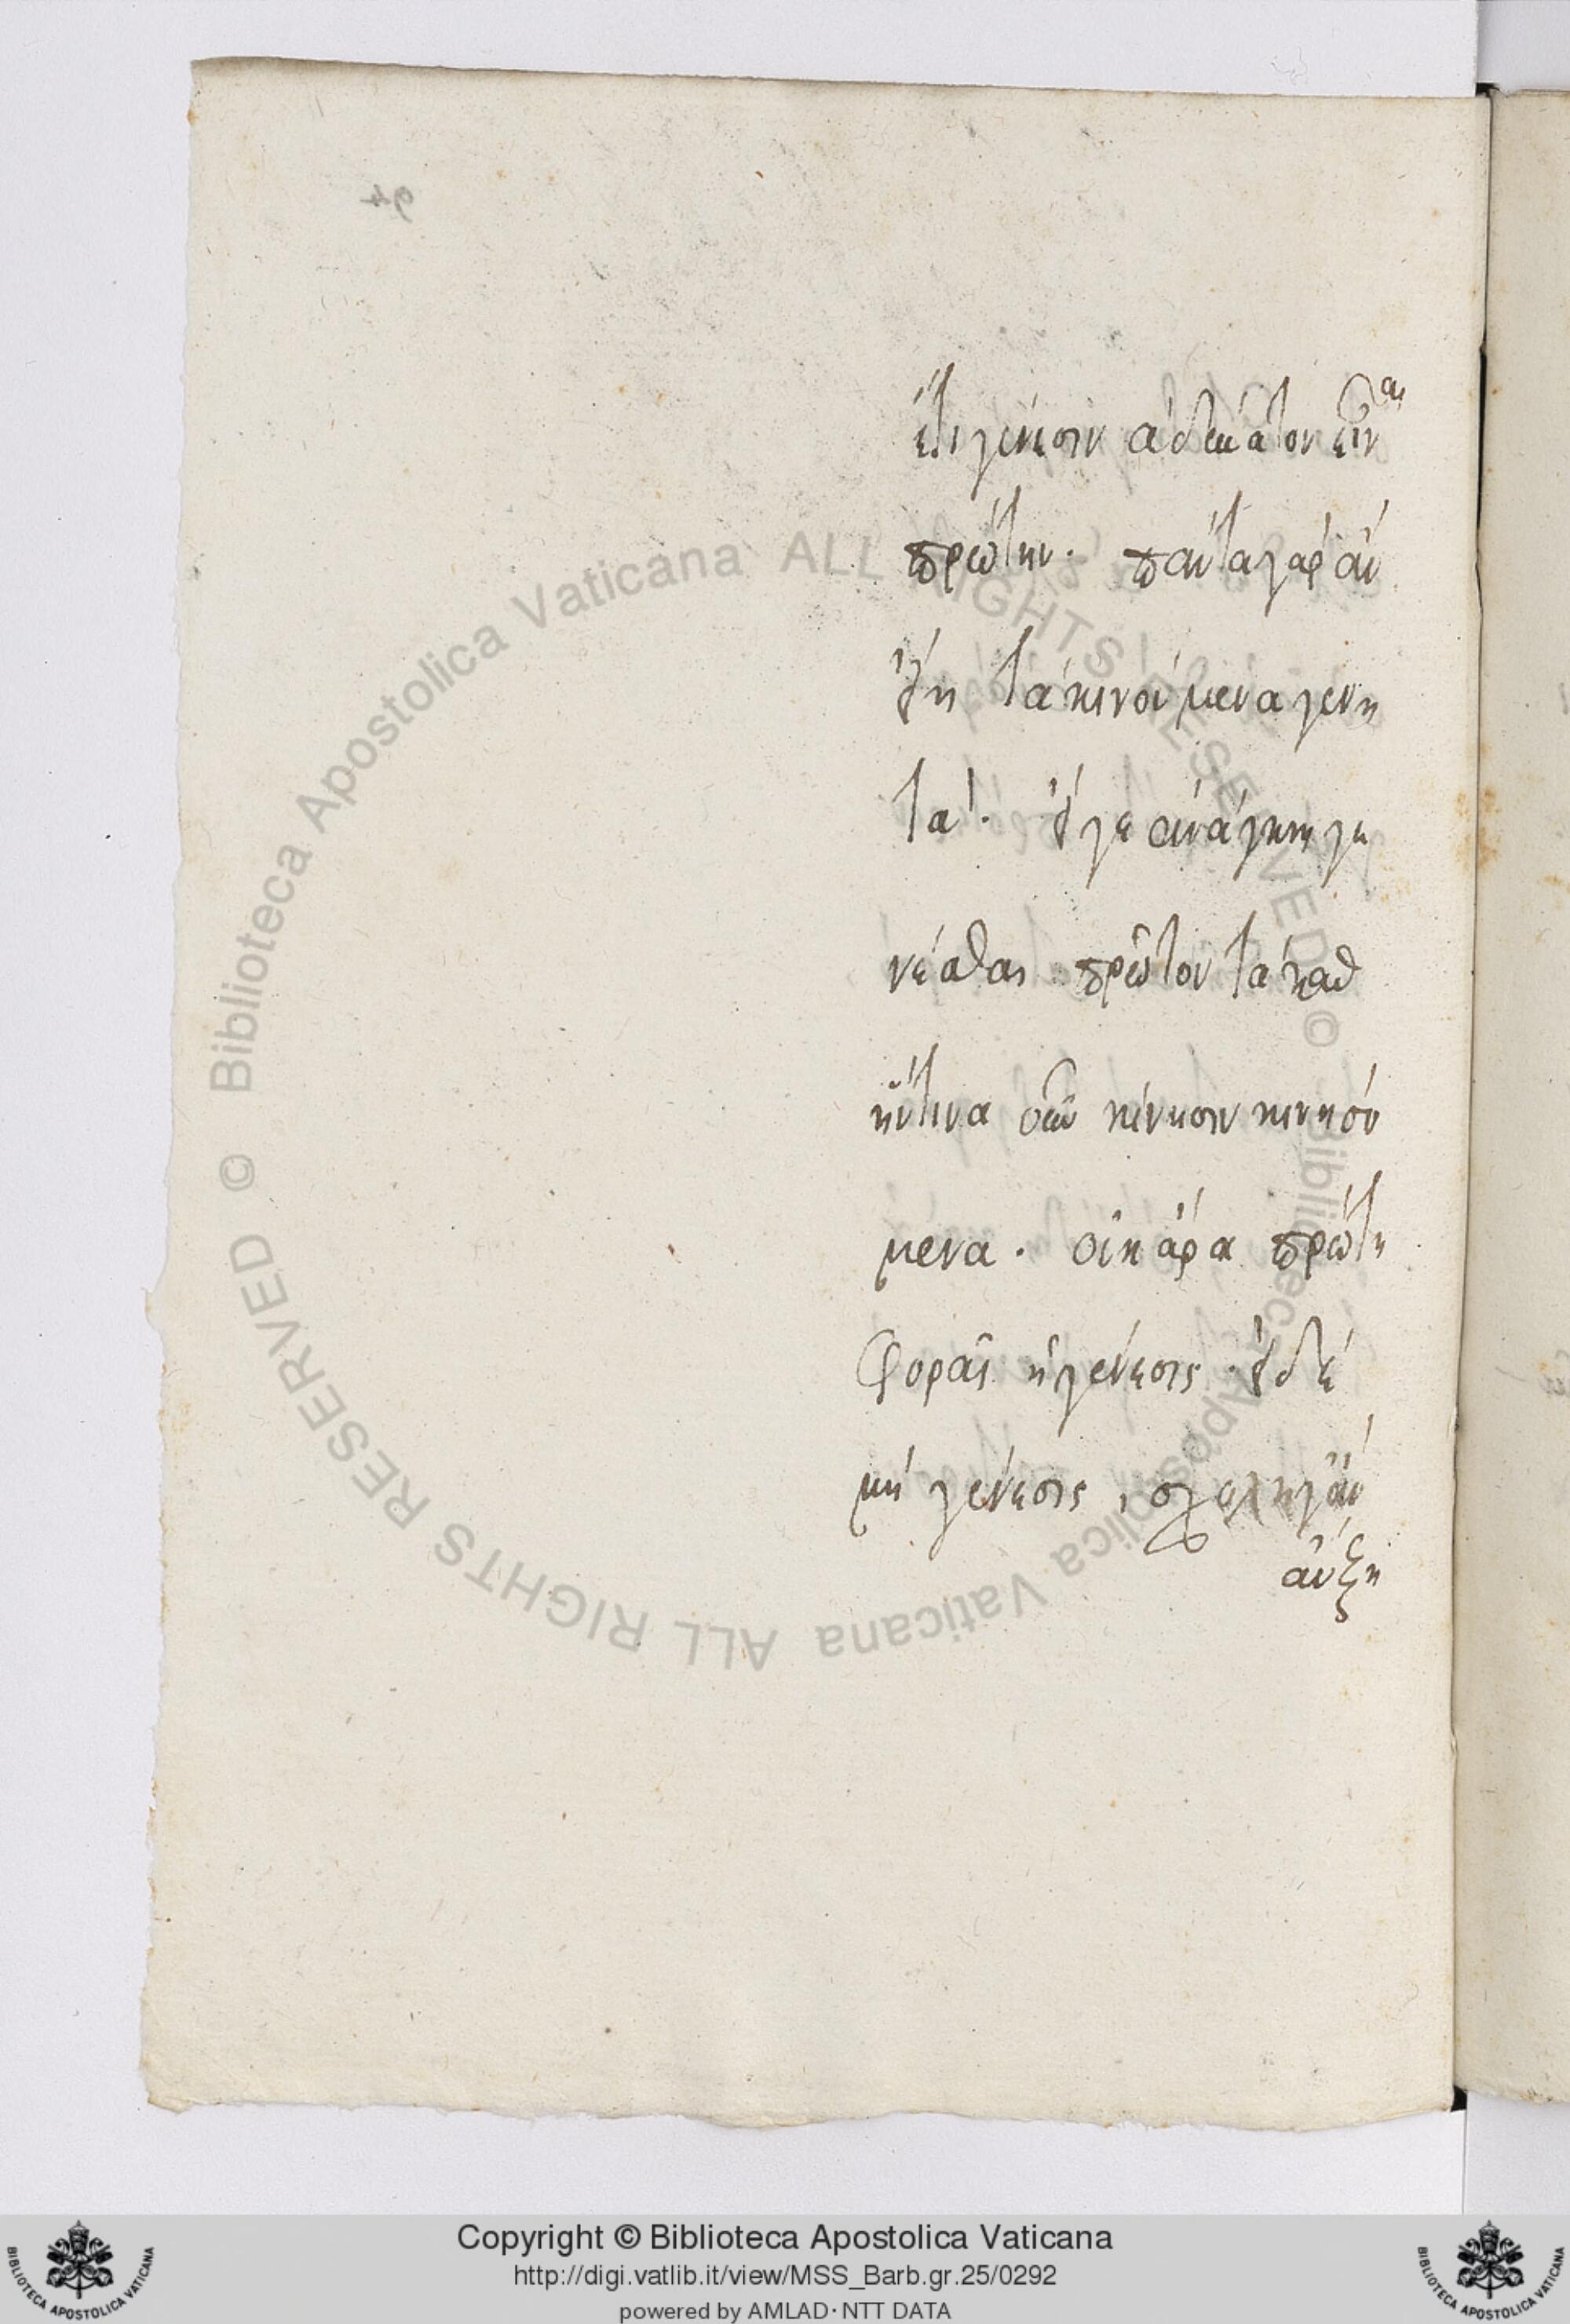 94
ἔτι γένεσιν ἀδύνατον εἶναι
πρώτην. πάντα γὰρ ἂν
εἴη τὰ κινούμενα γενη
τά. δεῖ γε ἀνάγκη γε
νέσθαι πρῶτον τὰ καθ
ἥντινα οὖν κίνησιν κινησό
μενα. οὐκ ἄρα πρώτη
φορᾶς ἡ γένεσις. εἰ δὲ
μὴ γένεσις, σχολῇ γ' ἂν
αὔξη
© Biblioteca Apostolica Vaticana ALL RIGHTS RESERVED © Biblioteca Apostolica Vaticana ALL RIGHTS RESERVED
Copyright © Biblioteca Apostolica Vaticana
http://digi.vatlib.it/view/MSS_Barb.gr.25/0292
powered by AMLAD · NTT DATA
BIBLIOTECA APOSTOLICA VATICANA
BIBLIOTECA APOSTOLICA VATICANA